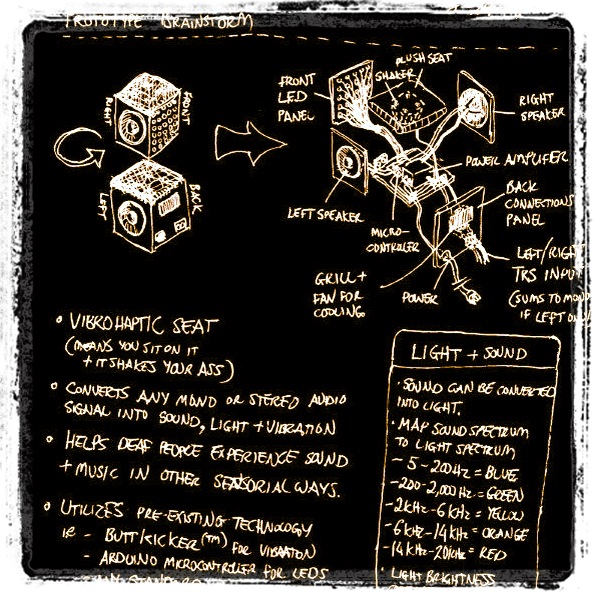 PROTOTYPE BRAINSTORM
RIGHT
FRONT
LEFT
BACK
FRONT
LED
PANEL
SHAKER
PLUSH SEAT
RIGHT
SPEAKER
POWER AMPLIFIER
BACK
CONNECTIONS
PANEL
LEFT SPEAKER
MICRO-
CONTROLLER
LEFT/RIGHT
TRS INPUT
(SUMS TO MONO
IF LEFT ONLY)
GRILL +
FAN FOR
COOLING.
POWER
• VIBROHAPTIC SEAT
(MEANS YOU SIT ON IT
+ IT SHAKES YOUR ASS)
• CONVERTS ANY MONO OR STEREO AUDIO
SIGNAL INTO SOUND, LIGHT + VIBRATION
• HELPS DEAF PEOPLE EXPERIENCE SOUND
+ MUSIC IN OTHER SENSORIAL WAYS.
• UTILIZES PRE-EXISTING TECHNOLOGY
IE - BUTTKICKER(TM) FOR VIBRATION
- ARDUINO MICROCONTROLLER FOR LEDS
LIGHT + SOUND
• SOUND CAN BE CONVERTED
INTO LIGHT.
• MAP SOUND SPECTRUM
TO LIGHT SPECTRUM
- 5-200Hz = BLUE
- 200-2,000Hz = GREEN
- 2kHz-6kHz = YELLOW
- 6kHz-14kHz = ORANGE
- 14kHz-20kHz = RED
• LIGHT BRIGHTNESS